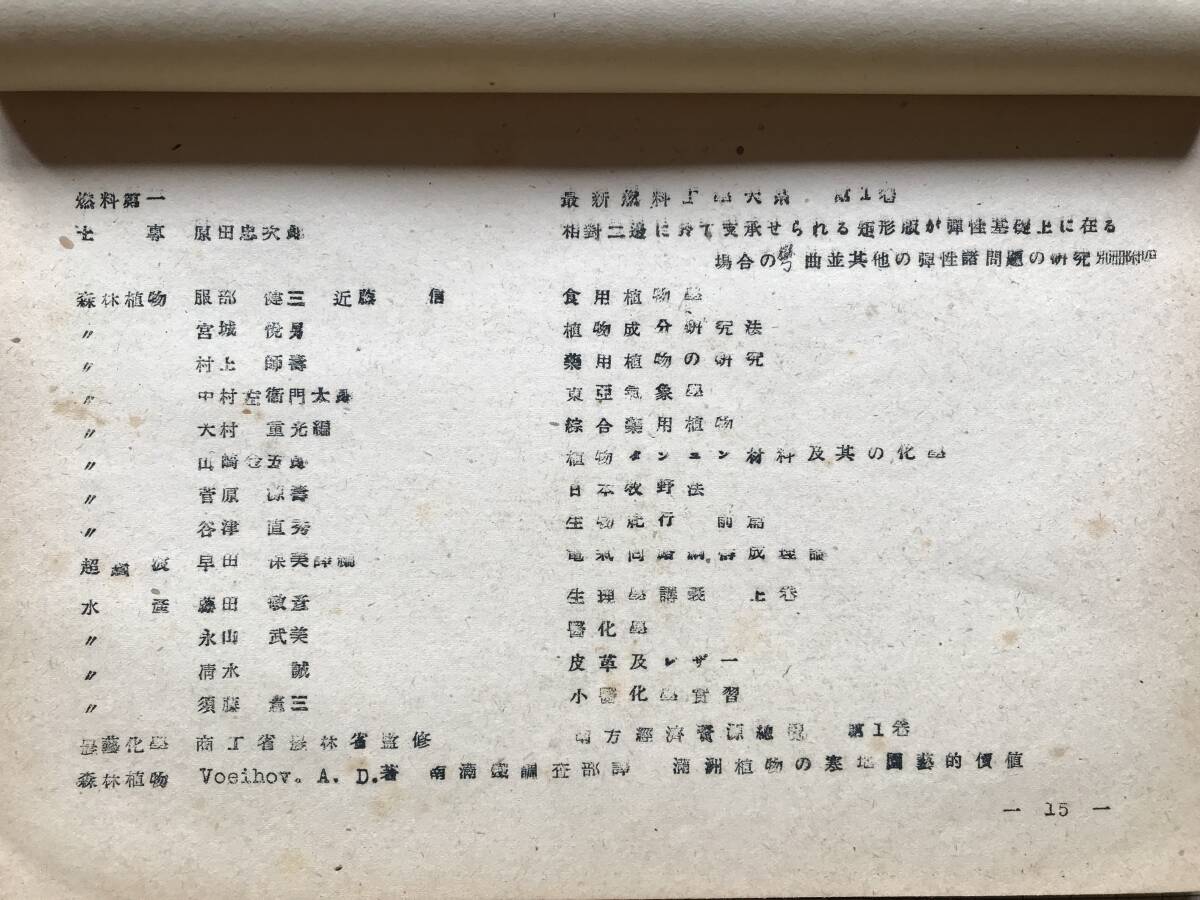 燃料第一 最新燃料工學大系 第1卷
土専 原田忠次郎 相對二邊に於て支承せられる矩形版が彈性基礎上に在る
場合の彎曲並其他の彈性諸問題の研究 別冊附四
森林植物 服部健三 近藤 信 食用植物學
〃 宮城悅男 植物成分硏究法
〃 村上師壽 藥用植物の研究
〃 中村左衛門太郎 東亞氣象學
〃 大村重光編 綜合藥用植物
〃 山崎 五郎 植物タンニン材料及其の化學
〃 菅原 壽 日本牧野法
〃 谷津直秀 生物 行 前篇
超 波 早田保美譯編 電氣回路網構成理論
水産 藤田敏彥 生理學講義 上卷
〃 永山武美 醫化學
〃 淸水 誠 皮革及レザー
〃 須藤憲三 小醫化學實習
農藝化學 商工省農林省監修 南方經濟資源總覽 第1卷
森林植物 Voeihov. A. D.著 南滿鐵調査部譯 滿洲植物の寒地園藝的價値
— 15 —